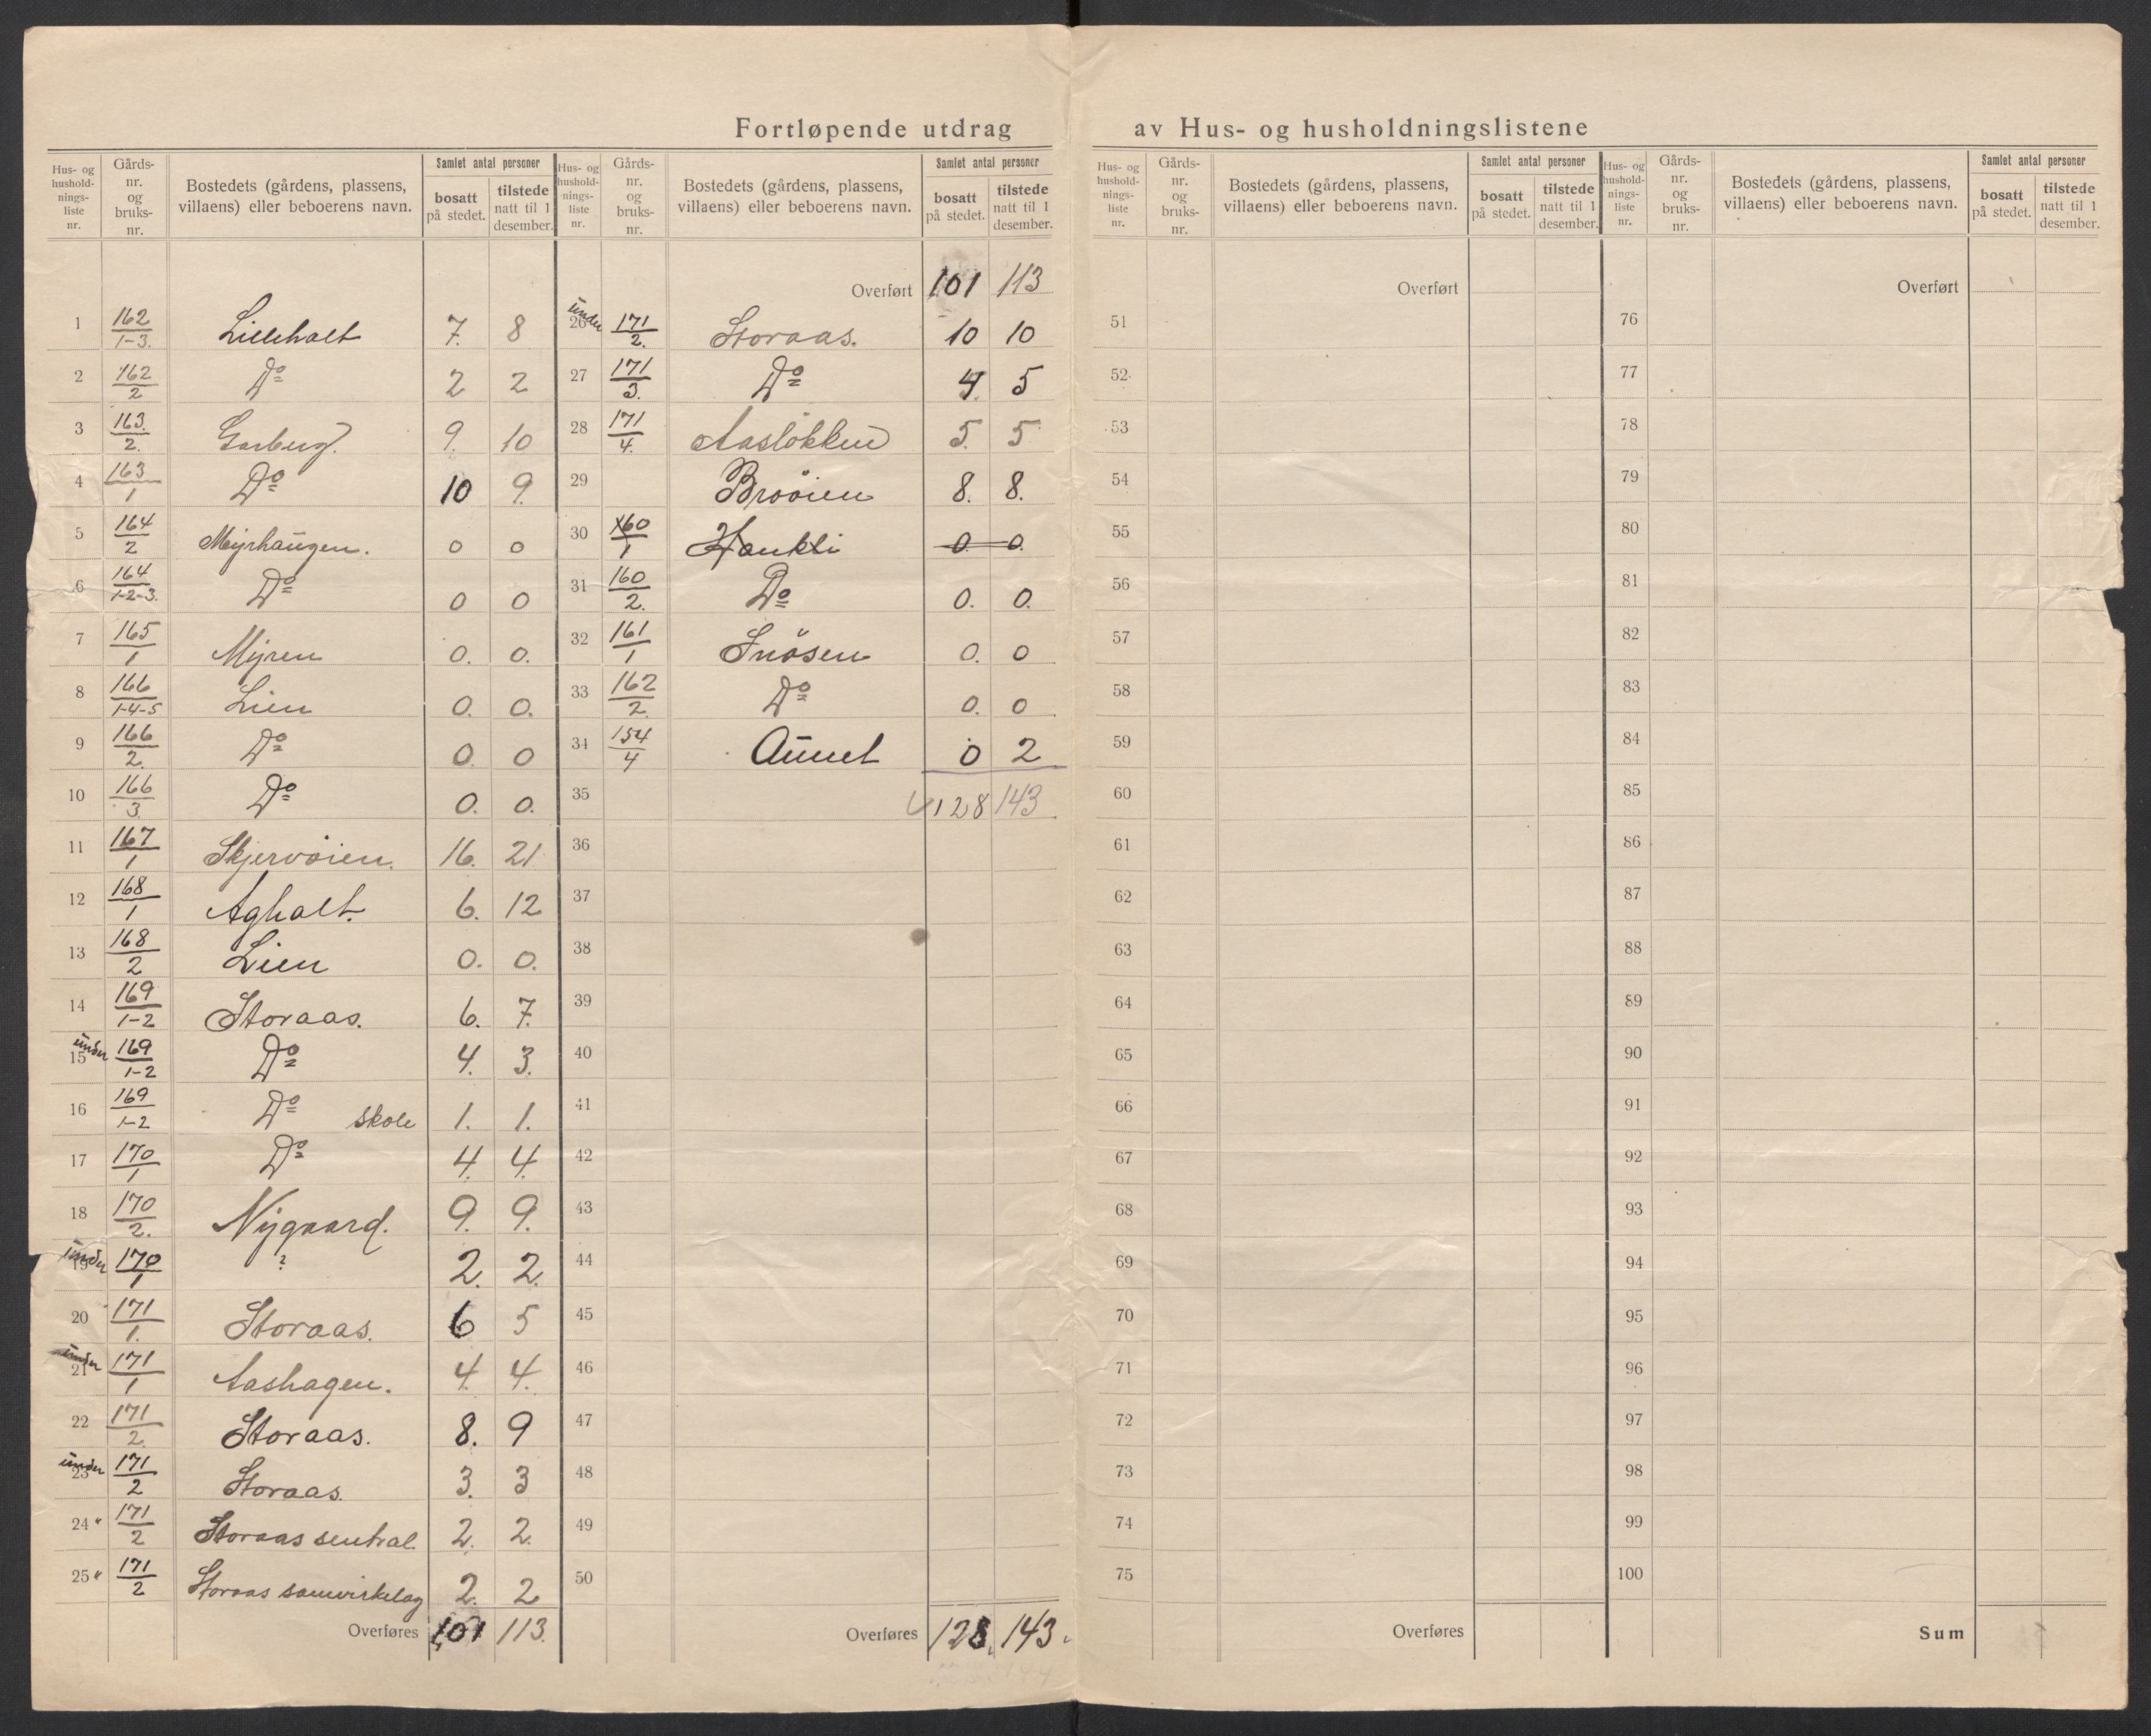 Fortløpende utdrag av Hus- og husholdningslistene
Hus- og hushold-nings-liste nr. Gårds-nr. og bruks-nr. Bostedets (gårdens, plassens, villaens) eller beboerens navn. Samlet antal personer bosatt på stedet. tilstede natt til 1 desember.
1 162/1-3. Lilleholt 7. 8
2 162/2 Do 2 2
3 163./2. Garberg. 9. 10
4 163/1 Do 10 9.
5 164/2 Myrhaugen. 0 0
6 164/1-2-3. Do 0 0
7 165/1 Myren 0. 0.
8 166/1-4-5 Lien 0. 0.
9 166/2. Do 0. 0
10 166/3. Do 0. 0.
11 167/1 Skjervøien. 16. 21
12 168/1 Agholt. 6. 12
13 168/2 Lien 0. 0.
14 169/1-2 Storaas. 6. 7.
under 15 169/1-2 Do 4. 3.
16 169/1-2 Do skole 1. 1.
17 170/1 Do 4. 4.
18 170/2. Nygaard. 9. 9.
under 19 170/1 ? 2. 2.
20 171/1. Storaas. 6 5
under 21 171/1 Aashagen. 4. 4.
22 171/2. Storaas. 8. 9
under 23 171/2 Storaas. 3. 3
24 " 171/2 Storaas sentral. 2. 2.
25 " 171/2 Storaas samvirkelag 2. 2
Overføres 101 113.
Hus- og hushold-nings-liste nr. Gårds-nr. og bruks-nr. Bostedets (gårdens, plassens, villaens) eller beboerens navn. Samlet antal personer bosatt på stedet. tilstede natt til 1 desember.
Overført 101 113
under 26 171/2. Storaas. 10 10
27 171/3. Do 4. 5
28 171/4. Aasløkken 5. 5
29 Brøøien 8. 8.
30 160/1 Haukli 0. 0.
31 160/2. Do 0. 0.
32 161/1 Snøsen 0. 0
33 162/2. Do 0. 0
34 154/4 Aunet 0 2
35 128 143
36
37
38
39
40
41
42
43
44
45
46
47
48
49
50
Overføres 128. 143.
Hus- og hushold-nings-liste nr. Gårds-nr. og bruks-nr. Bostedets (gårdens, plassens, villaens) eller beboerens navn. Samlet antal personer bosatt på stedet. tilstede natt til 1 desember.
Overført
51
52
53
54
55
56
57
58
59
60
61
62
63
64
65
66
67
68
69
70
71
72
73
74
75
Overføres
Hus- og hushold-nings-liste nr. Gårds-nr. og bruks-nr. Bostedets (gårdens, plassens, villaens) eller beboerens navn. Samlet antal personer bosatt på stedet. tilstede natt til 1 desember.
Overført
76
77
78
79
80
81
82
83
84
85
86
87
88
89
90
91
92
93
94
95
96
97
98
99
100
Sum